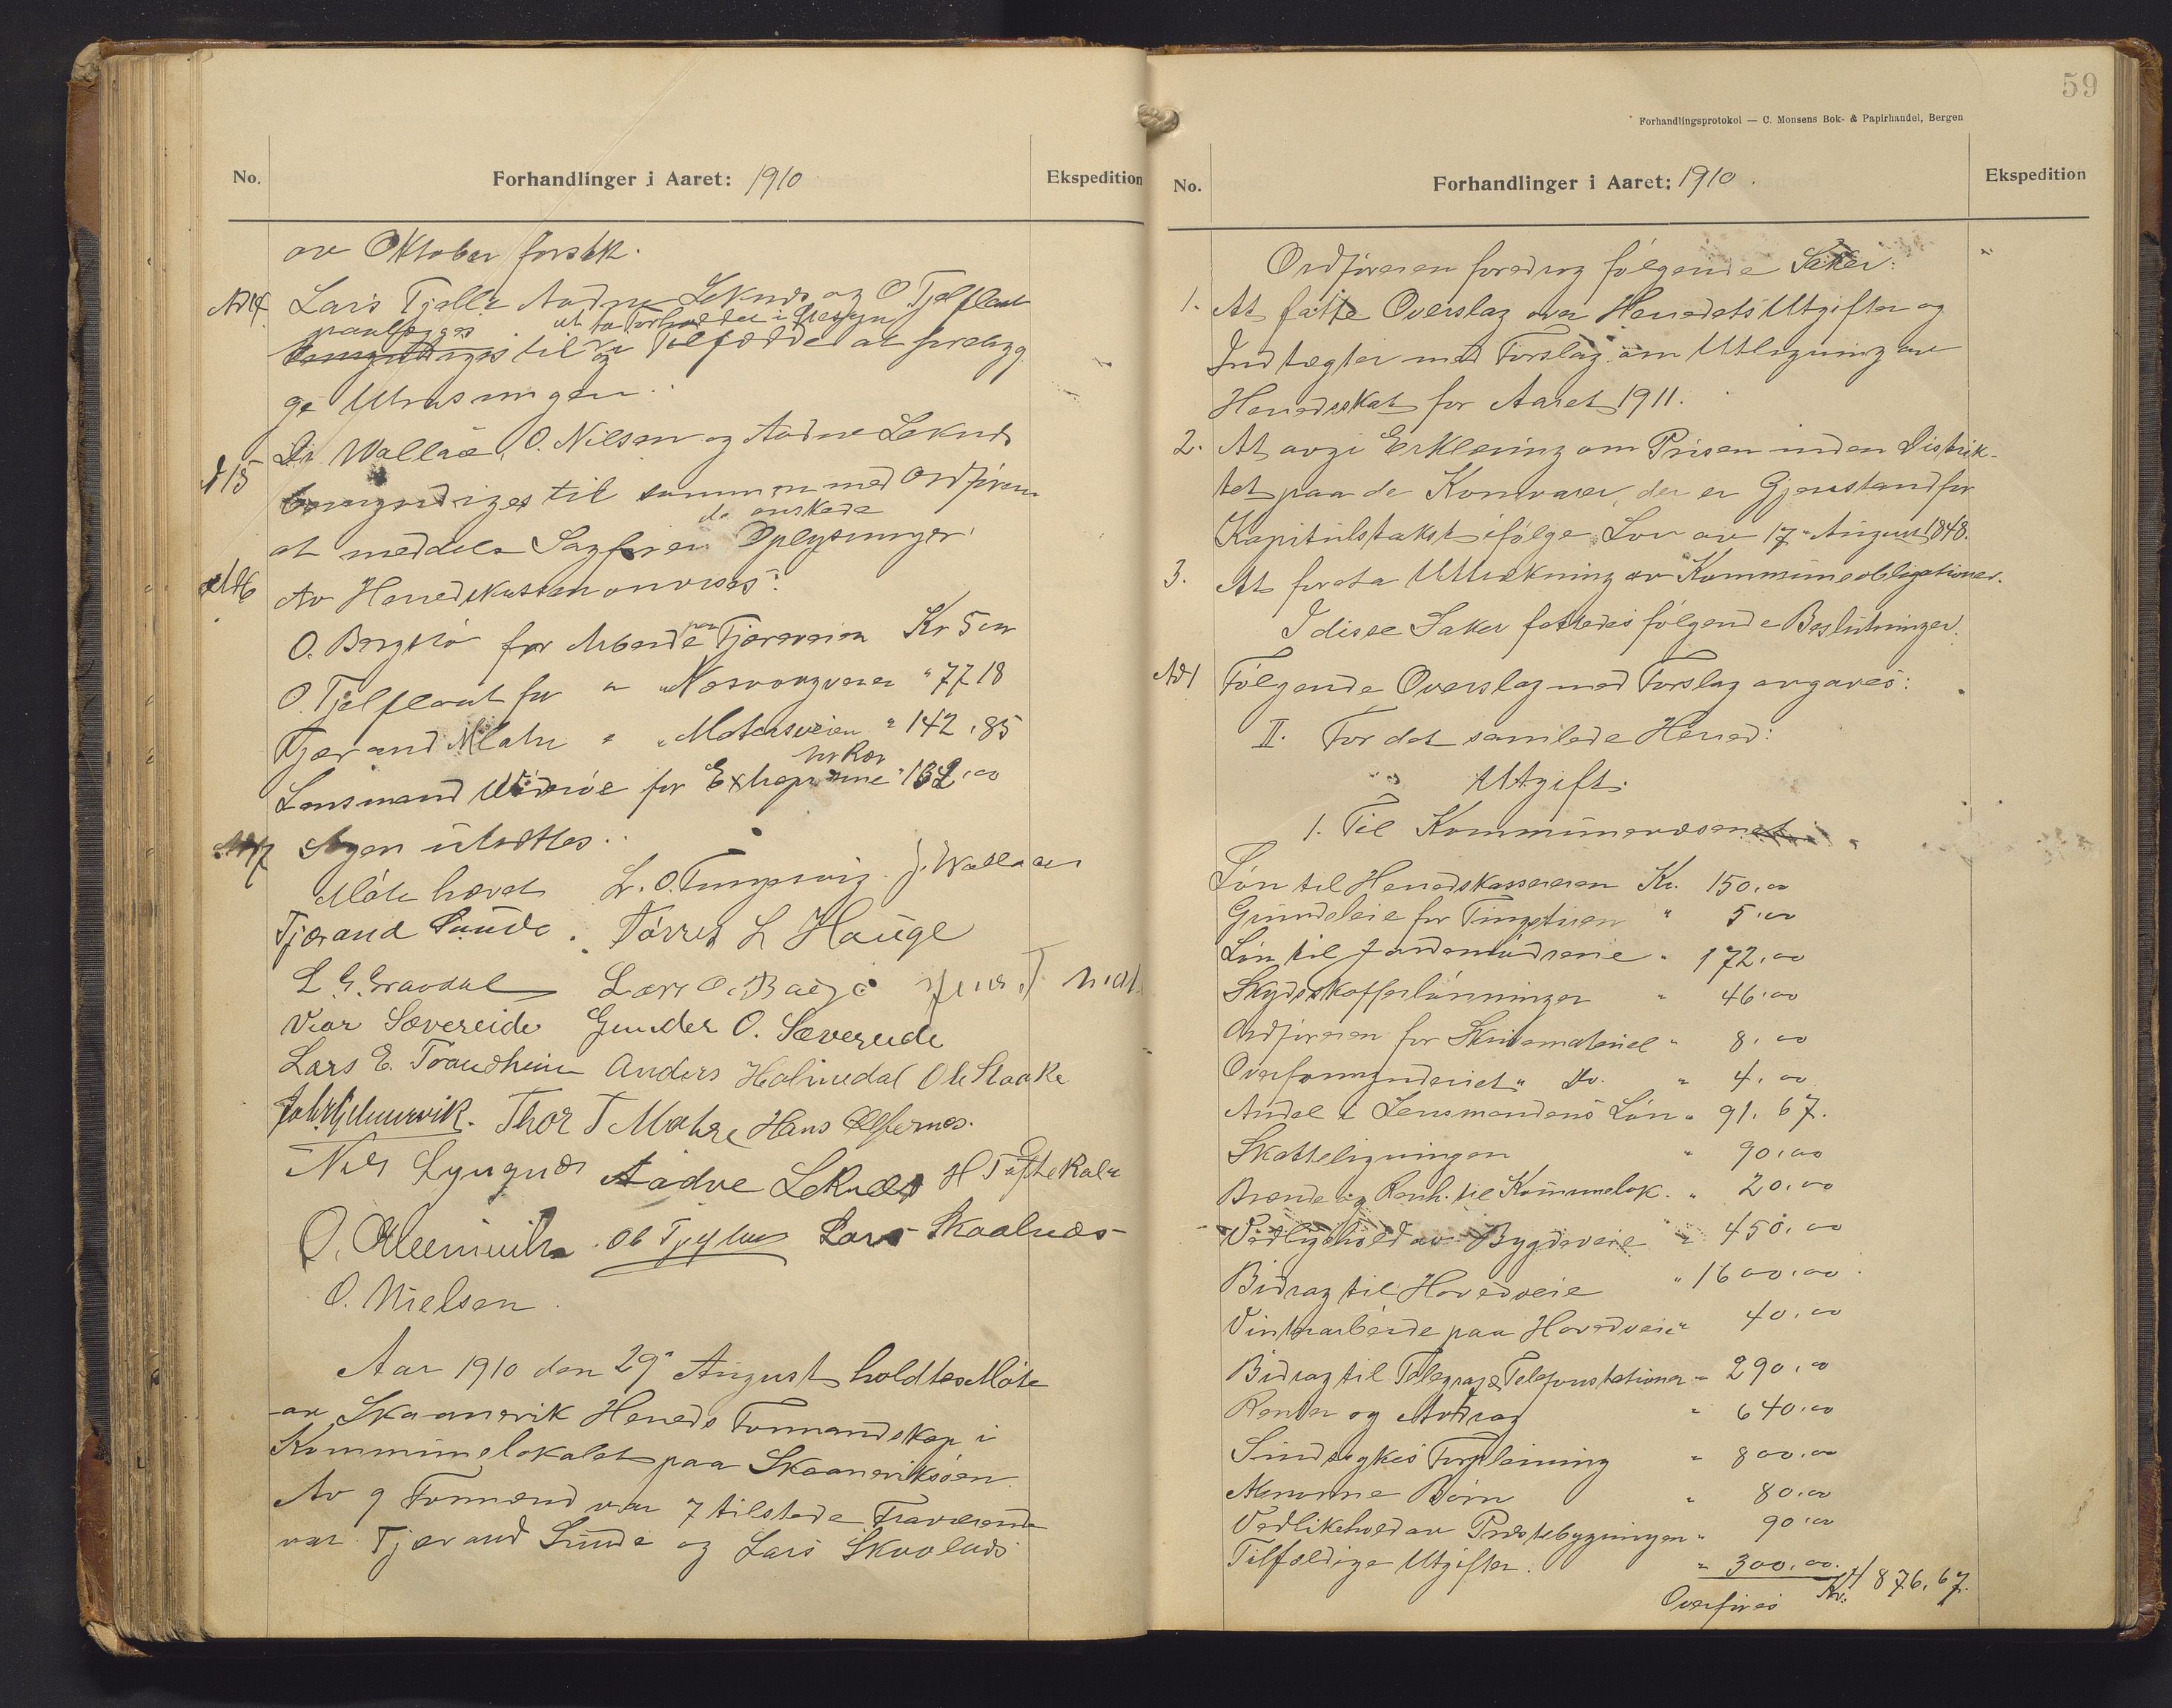 No.
Forhandlinger i Aaret: 1910
Ekspedition
av Oktober forstk.
Ad 14 Lars Tjelle Aadne Leknes og O Tjelflaat
paalægges at ta Forholdet i Øiesyn
til og i Tilfælde at forebyg
ge Utrasningen.
Ad 15 Dr. Wallaa, O. Nilsen og Aadne Leknes
bemyndiges til sammen med Ordføreren
de ønskede
at meddele Sagføreren Oplysninger.
Ad 16 Av Herredskassen anvises:
O. Bergstø for Arbeide paa Tjeraveien Kr 5 00
O. Tjelflaat for " " Næsvaagveien " 77 18
Tjerand Matre " " Matersveien " 142,85
Lensmand Widerøe for Extrapr " 132,00
Ad 17 Sagen utsættes.
Møte hævet L. O. Tungesvig J. Wallaa
Tjerand Sunde. Tørres L Hauge
L. G. Gravdal Lars O. Baugø
Vier Sævereide Gunder O. Sævereide
Lars E. Traudheim Anders Holmedal Ole Staake
Thor T Matre Hans Ølfernes.
Nils Lyngnes Aadne Leknes H Toftekalv
O. Ol Tjelflaat Lars Skaalnæs
O. Nielsen.
Aar 1910 den 29' August holdtes Møte
av Skaanevik Herreds Formandskap i
Kommunelokalet paa Skaaneviksøen.
Av 9 Formænd var 7 tilstede Fraværende
var Tjerand Sunde og Lars Skaalnæs
59
Forhandlingsprotokol — C. Monsens Bok- & Papirhandel, Bergen
No.
Forhandlinger i Aaret: 1910.
Ekspedition
Ordføreren foredrog følgende Saker:
1. At fatte Overslag over Herredets Utgifter og
Indtægter med Forslag om Utligning av
Herredsskat for Aaret 1911.
2. At avgi Erklæring om Prisen inden Distrik-
tet paa de Kornvarer, der er Gjenstand for
Kapitulstakst ifølge Lov av 17" August 1848.
3. At foreta Uttrækning av Kommuneobligationer.
I disse Saker fattedes følgende Beslutninger.
Ad 1 Følgende Overslag med Forslag avgaves:
II. For det samlede Herred:
Utgift.
1. Til Kommunevæsenet
Løn til Herredskassereren Kr. 150,00
Grundleie for Tingstuen " 5,00
Løn til Jordemødrene " 172,00
Skydsskafferlønninger " 46,00
Ordføreren for Skrivemateriel " 8,00
Overformynderiet " Do. " 4,00
Andel i Lensmandens Løn " 91,67.
Skatteligningen " 90,00
Brænde og Renh. til Kommunelok. " 20,00
Vedligehold av Bygdeveie " 450,00
Bidrag til Hovedveie " 1600,00
Vinterarbeide paa Hovedveie " 40,00
Bidrag til Telegraf & Telefonstationer " 290,00
Renter og Avdrag " 640,00
Sindssykes Forpleining " 800,00
Abnorme Børn " 80,00
Vedlikehold av Prestebygningen " 90,00
Tilfældige Utgifter. " 300,00.
Overføres Kr. 4876,67.